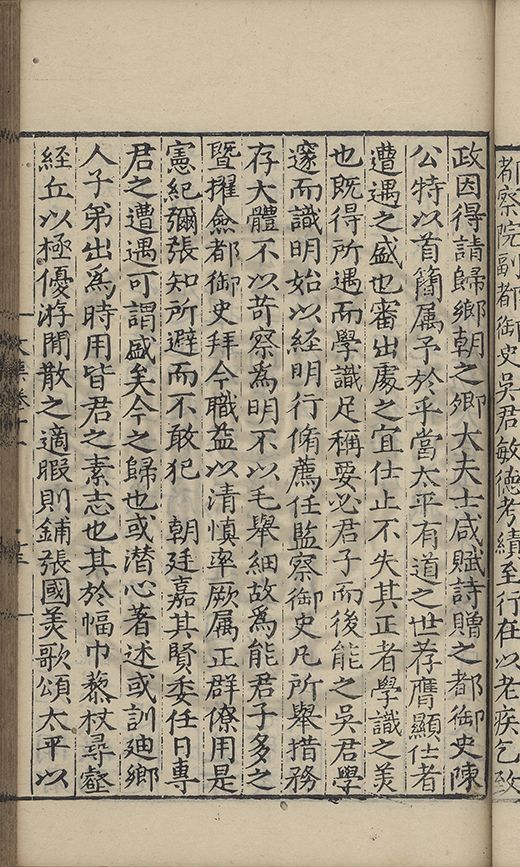 都察院副都御史吳君敏德考績至行在以老疾乞致
政因得請歸鄉朝之卿大夫士咸賦詩贈之都御史陳
公特以首簡属予於乎當太平有道之世荐膺顯仕者
遭遇之盛也審出處之宜仕止不失其正者學識之美
也既得所遇而學識足稱要必君子而後能之吳君學
邃而識明始以經明行脩薦任監察御史凡所舉措務
存大體不以苛察為明不以毛舉細故為能君子多之
暨擢僉都御史拜今職益以清慎率厥属正群僚用是
憲紀彌張知所避而不敢犯　朝廷嘉其賢委任日專
君之遭遇可謂盛矣今之歸也或潜心著述或訓廸鄉
人子弟出為時用皆君之素志也其於幅巾藜杖尋壑
經丘以極優游閒散之適暇則鋪張國美歌頌太平以
文集卷十一